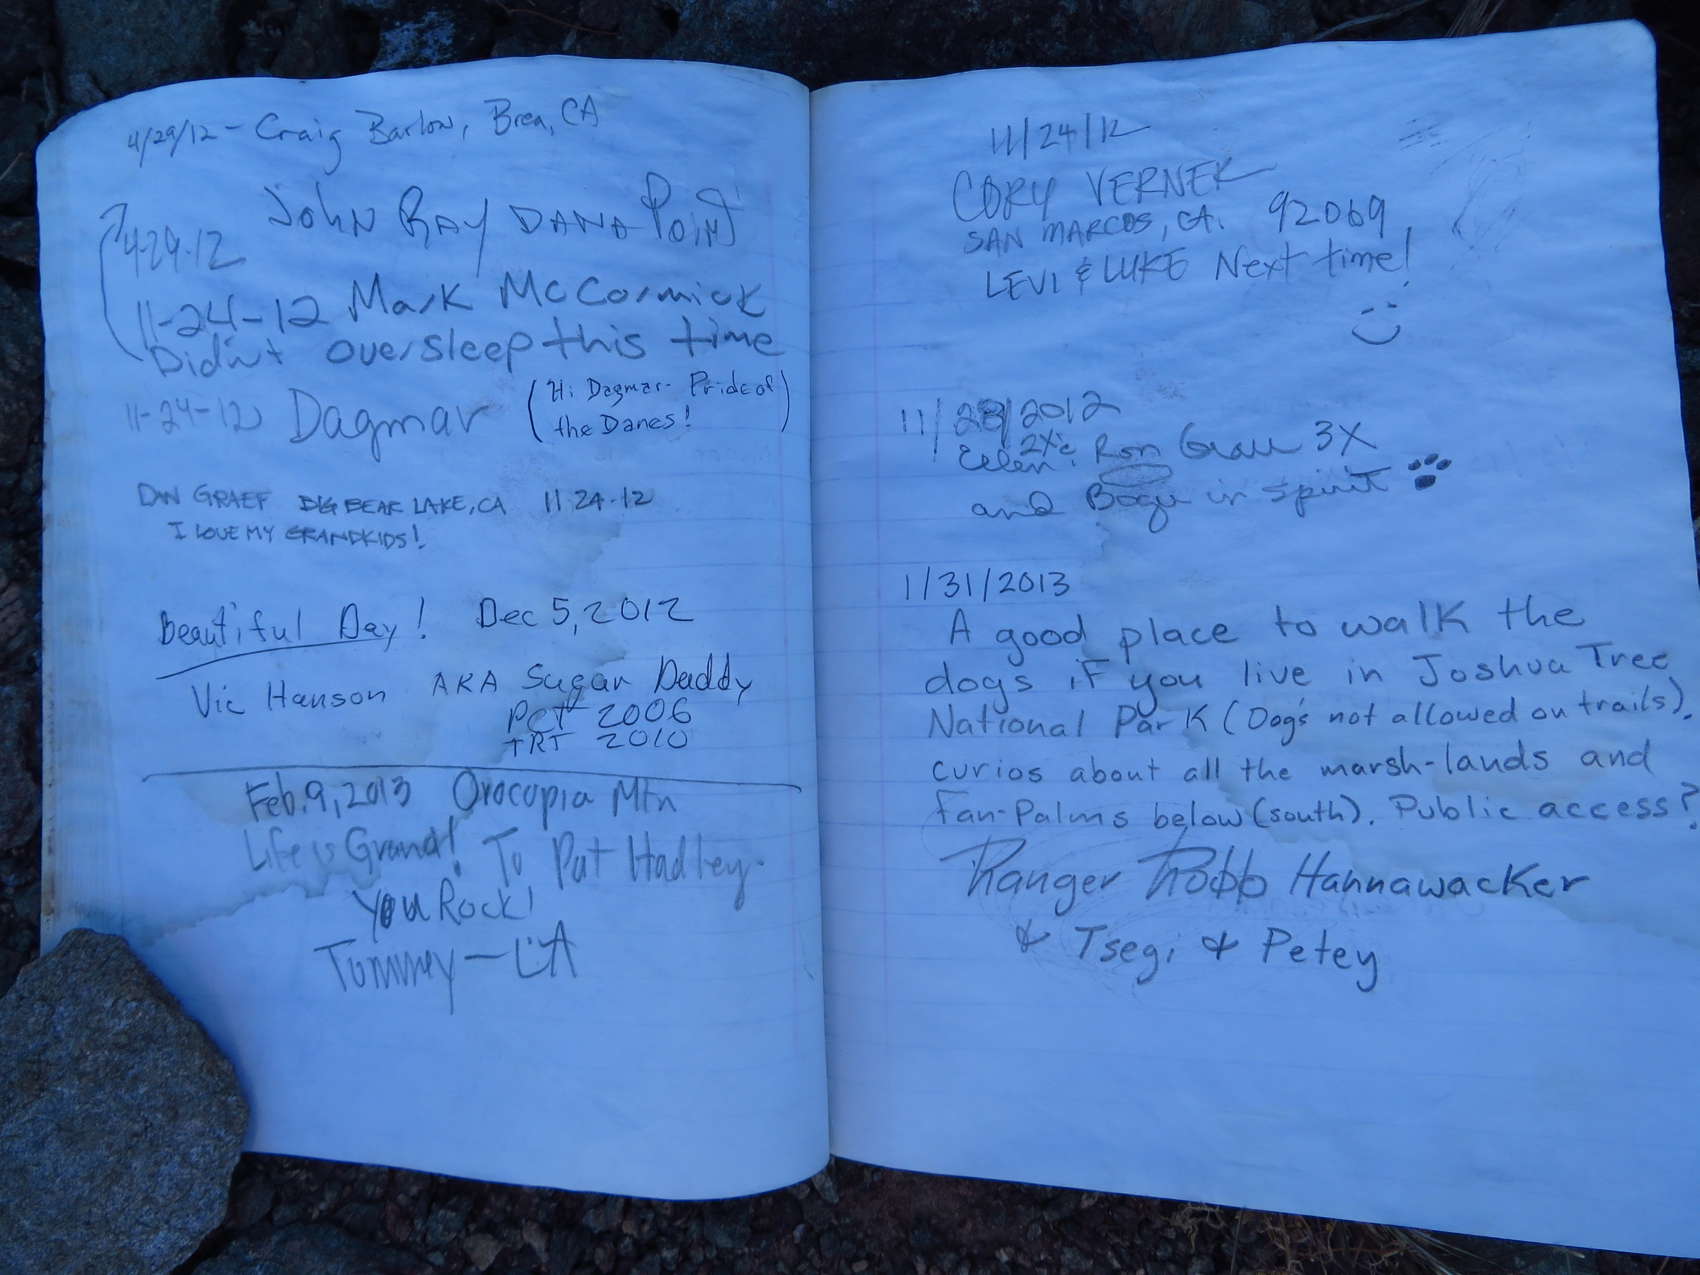 4/29/12 - Craig Barlow, Brea, CA
John Ray Dana Point
4-29-12
11-24-12 Mark McCormick
Didn't oversleep this time
11-24-12 Dagmar (Hi Dagmar - Pride of
the Danes!)
DAN GRAEF BIG BEAR LAKE, CA 11-24-12
I LOVE MY GRANDKIDS!
Beautiful Day! Dec 5, 2012
Vic Hanson AKA Sugar Daddy
PCT 2006
TRT 2010
Feb. 9, 2013 Orocopia Mtn
Life is Grand! To Pat Hadley.
You Rock!
Tommey - LA
11/24/12
CORY VERNER
SAN MARCOS, CA. 92069
LEVI & LUKE Next time!
11/28/2012
Ellen 2X & Ron Grau 3X
and in spirit
1/31/2013
A good place to walk the
dogs if you live in Joshua Tree
National Park (Dogs not allowed on trails).
curios about all the marsh-lands and
Fan-Palms below (south). Public access?
Ranger Robb Hannawacker
& Tsegi & Petey